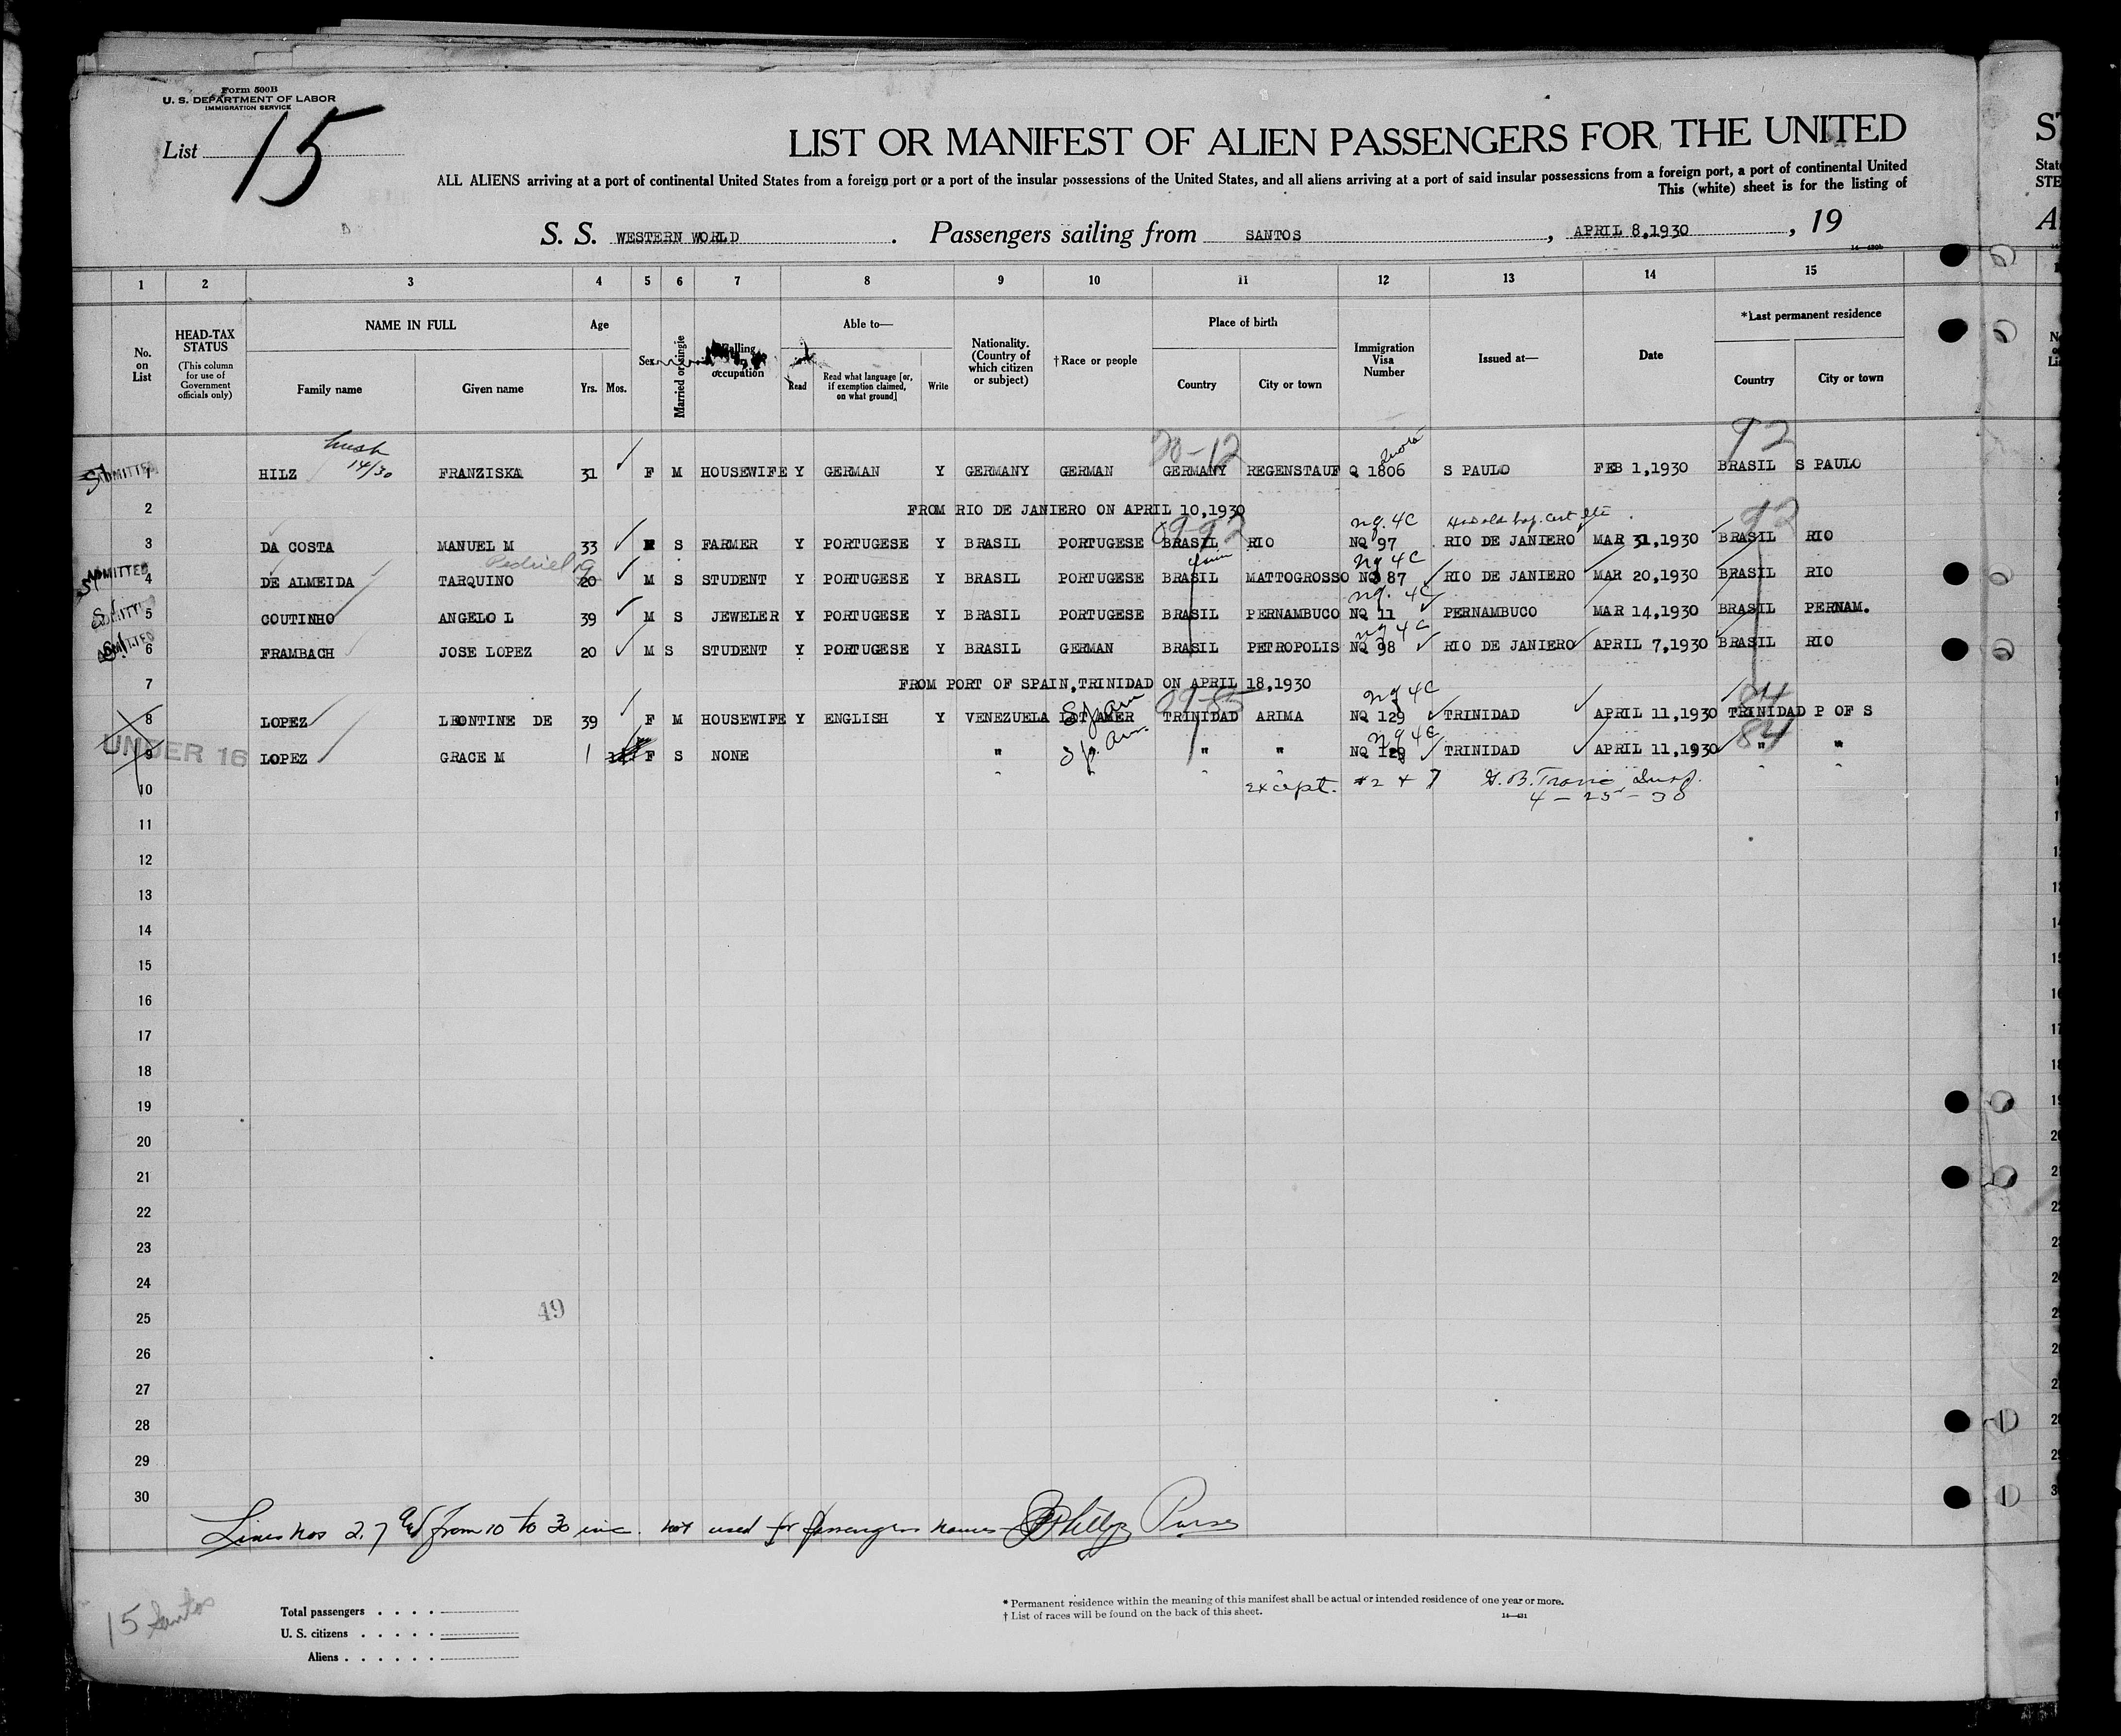 Form 500B
U. S. DEPARTMENT OF LABOR
IMMIGRATION SERVICE
List 15
LIST OR MANIFEST OF ALIEN PASSENGERS FOR THE UNITED
ALL ALIENS arriving at a port of continental United States from a foreign port or a port of the insular possessions of the United States, and all aliens arriving at a port of said insular possessions from a foreign port, a port of continental United
This (white) sheet is for the listing of
S. S. WESTERN WORLD . Passengers sailing from SANTOS , APRIL 8,1930 , 19
1 2 3 4 5 6 7 8 9 10 11 12 13 14 15
No. on List
HEAD-TAX STATUS
(This column for use of Government officials only)
NAME IN FULL
Family name Given name
Age
Yrs. Mos.
Sex
Married or single
Calling or occupation
Able to—
Read
Read what language [or, if exemption claimed, on what ground]
Write
Nationality. (Country of which citizen or subject)
†Race or people
Place of birth
Country City or town
Immigration Visa Number
Issued at—
Date
*Last permanent residence
Country City or town
20-12 92
14/30
ADMITTED 1 HILZ FRANZISKA 31 F M HOUSEWIFE Y GERMAN Y GERMANY GERMAN GERMANY REGENSTAUF Q 1806 S PAULO FEB 1,1930 BRASIL S PAULO
2 FROM RIO DE JANIERO ON APRIL 10,1930
nq. 4C
3 DA COSTA MANUEL M 33 S FARMER Y PORTUGESE Y BRASIL PORTUGESE BRASIL RIO NQ 97 RIO DE JANIERO MAR 31,1930 BRASIL RIO
nq 4C
ADMITTED 4 DE ALMEIDA TARQUINO 20 M S STUDENT Y PORTUGESE Y BRASIL PORTUGESE BRASIL MATTOGROSSO NQ 87 RIO DE JANIERO MAR 20,1930 BRASIL RIO
nq. 4C
ADMITTED 5 COUTINHO ANGELO L 39 M S JEWELER Y PORTUGESE Y BRASIL PORTUGESE BRASIL PERNAMBUCO NQ 11 PERNAMBUCO MAR 14,1930 BRASIL PERNAM.
nq 4C
ADMITTED 6 FRAMBACH JOSE LOPEZ 20 M S STUDENT Y PORTUGESE Y BRASIL GERMAN BRASIL PETROPOLIS NQ 98 RIO DE JANIERO APRIL 7,1930 BRASIL RIO
7 FROM PORT OF SPAIN,TRINIDAD ON APRIL 18,1930
nq 4C 84
8 LOPEZ LEONTINE DE 39 F M HOUSEWIFE Y ENGLISH Y VENEZUELA LAT AMER TRINIDAD ARIMA NQ 129 TRINIDAD APRIL 11,1930 TRINIDAD P OF S
Sp am
nq 4C 84
UNDER 16 9 LOPEZ GRACE M 1 F S NONE " Sp. Am. " " NQ 129 TRINIDAD APRIL 11,1930 " "
10 except. #2 + 7
4-25-30
11
12
13
14
15
16
17
18
19
20
21
22
23
24
49
25
26
27
28
29
30
Lines nos 2, 7 and from 10 to 30 inc. not used for passengers names Purser
15 Santos
Total passengers . . . .
U. S. citizens . . . . .
Aliens . . . . . .
* Permanent residence within the meaning of this manifest shall be actual or intended residence of one year or more.
† List of races will be found on the back of this sheet.